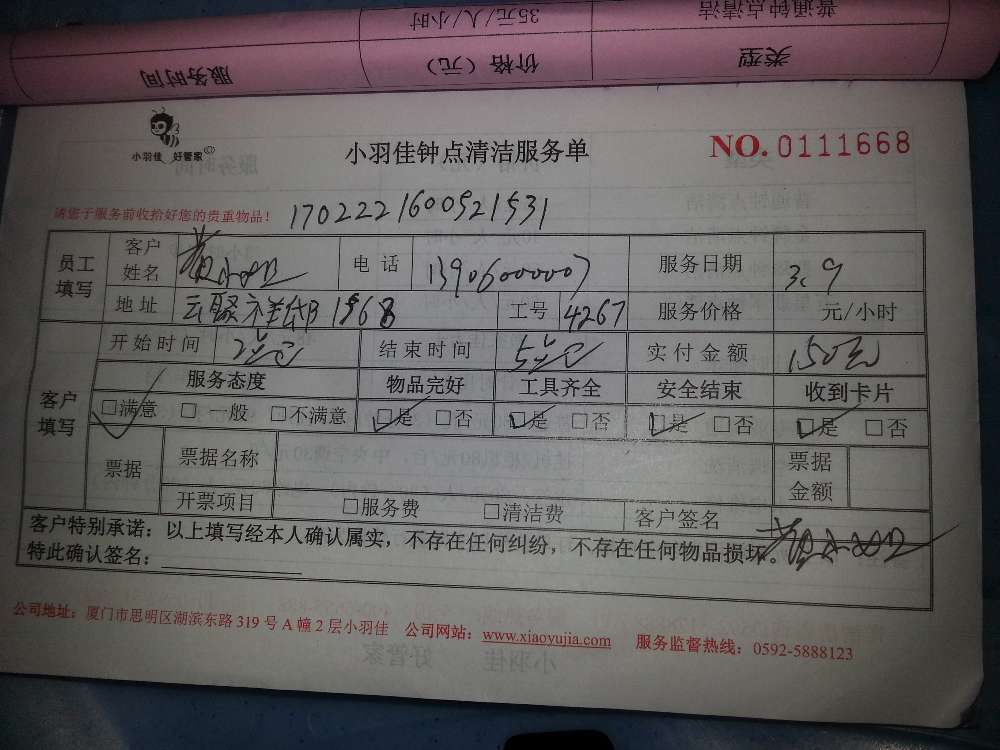 普通钟点清洁 35元/人/小时
类型 价格（元） 服务时间
小羽佳 好管家
小羽佳钟点清洁服务单
NO. 0111668
请您于服务前收拾好您的贵重物品！
1702221600521531
员工填写 客户姓名 电话 13906000007 服务日期 3.9
地址 1968 工号 4267 服务价格 元/小时
开始时间 结束时间 实付金额 150元
客户填写 服务态度 物品完好 工具齐全 安全结束 收到卡片
□满意 □一般 □不满意 □是 □否 □是 □否 □是 □否 □是 □否
票据 票据名称 票据金额
开票项目 □服务费 □清洁费 客户签名
客户特别承诺：以上填写经本人确认属实，不存在任何纠纷，不存在任何物品损坏。
特此确认签名：
公司地址：厦门市思明区湖滨东路319号A幢2层小羽佳 公司网站：www.xiaoyujia.com 服务监督热线：0592-5888123